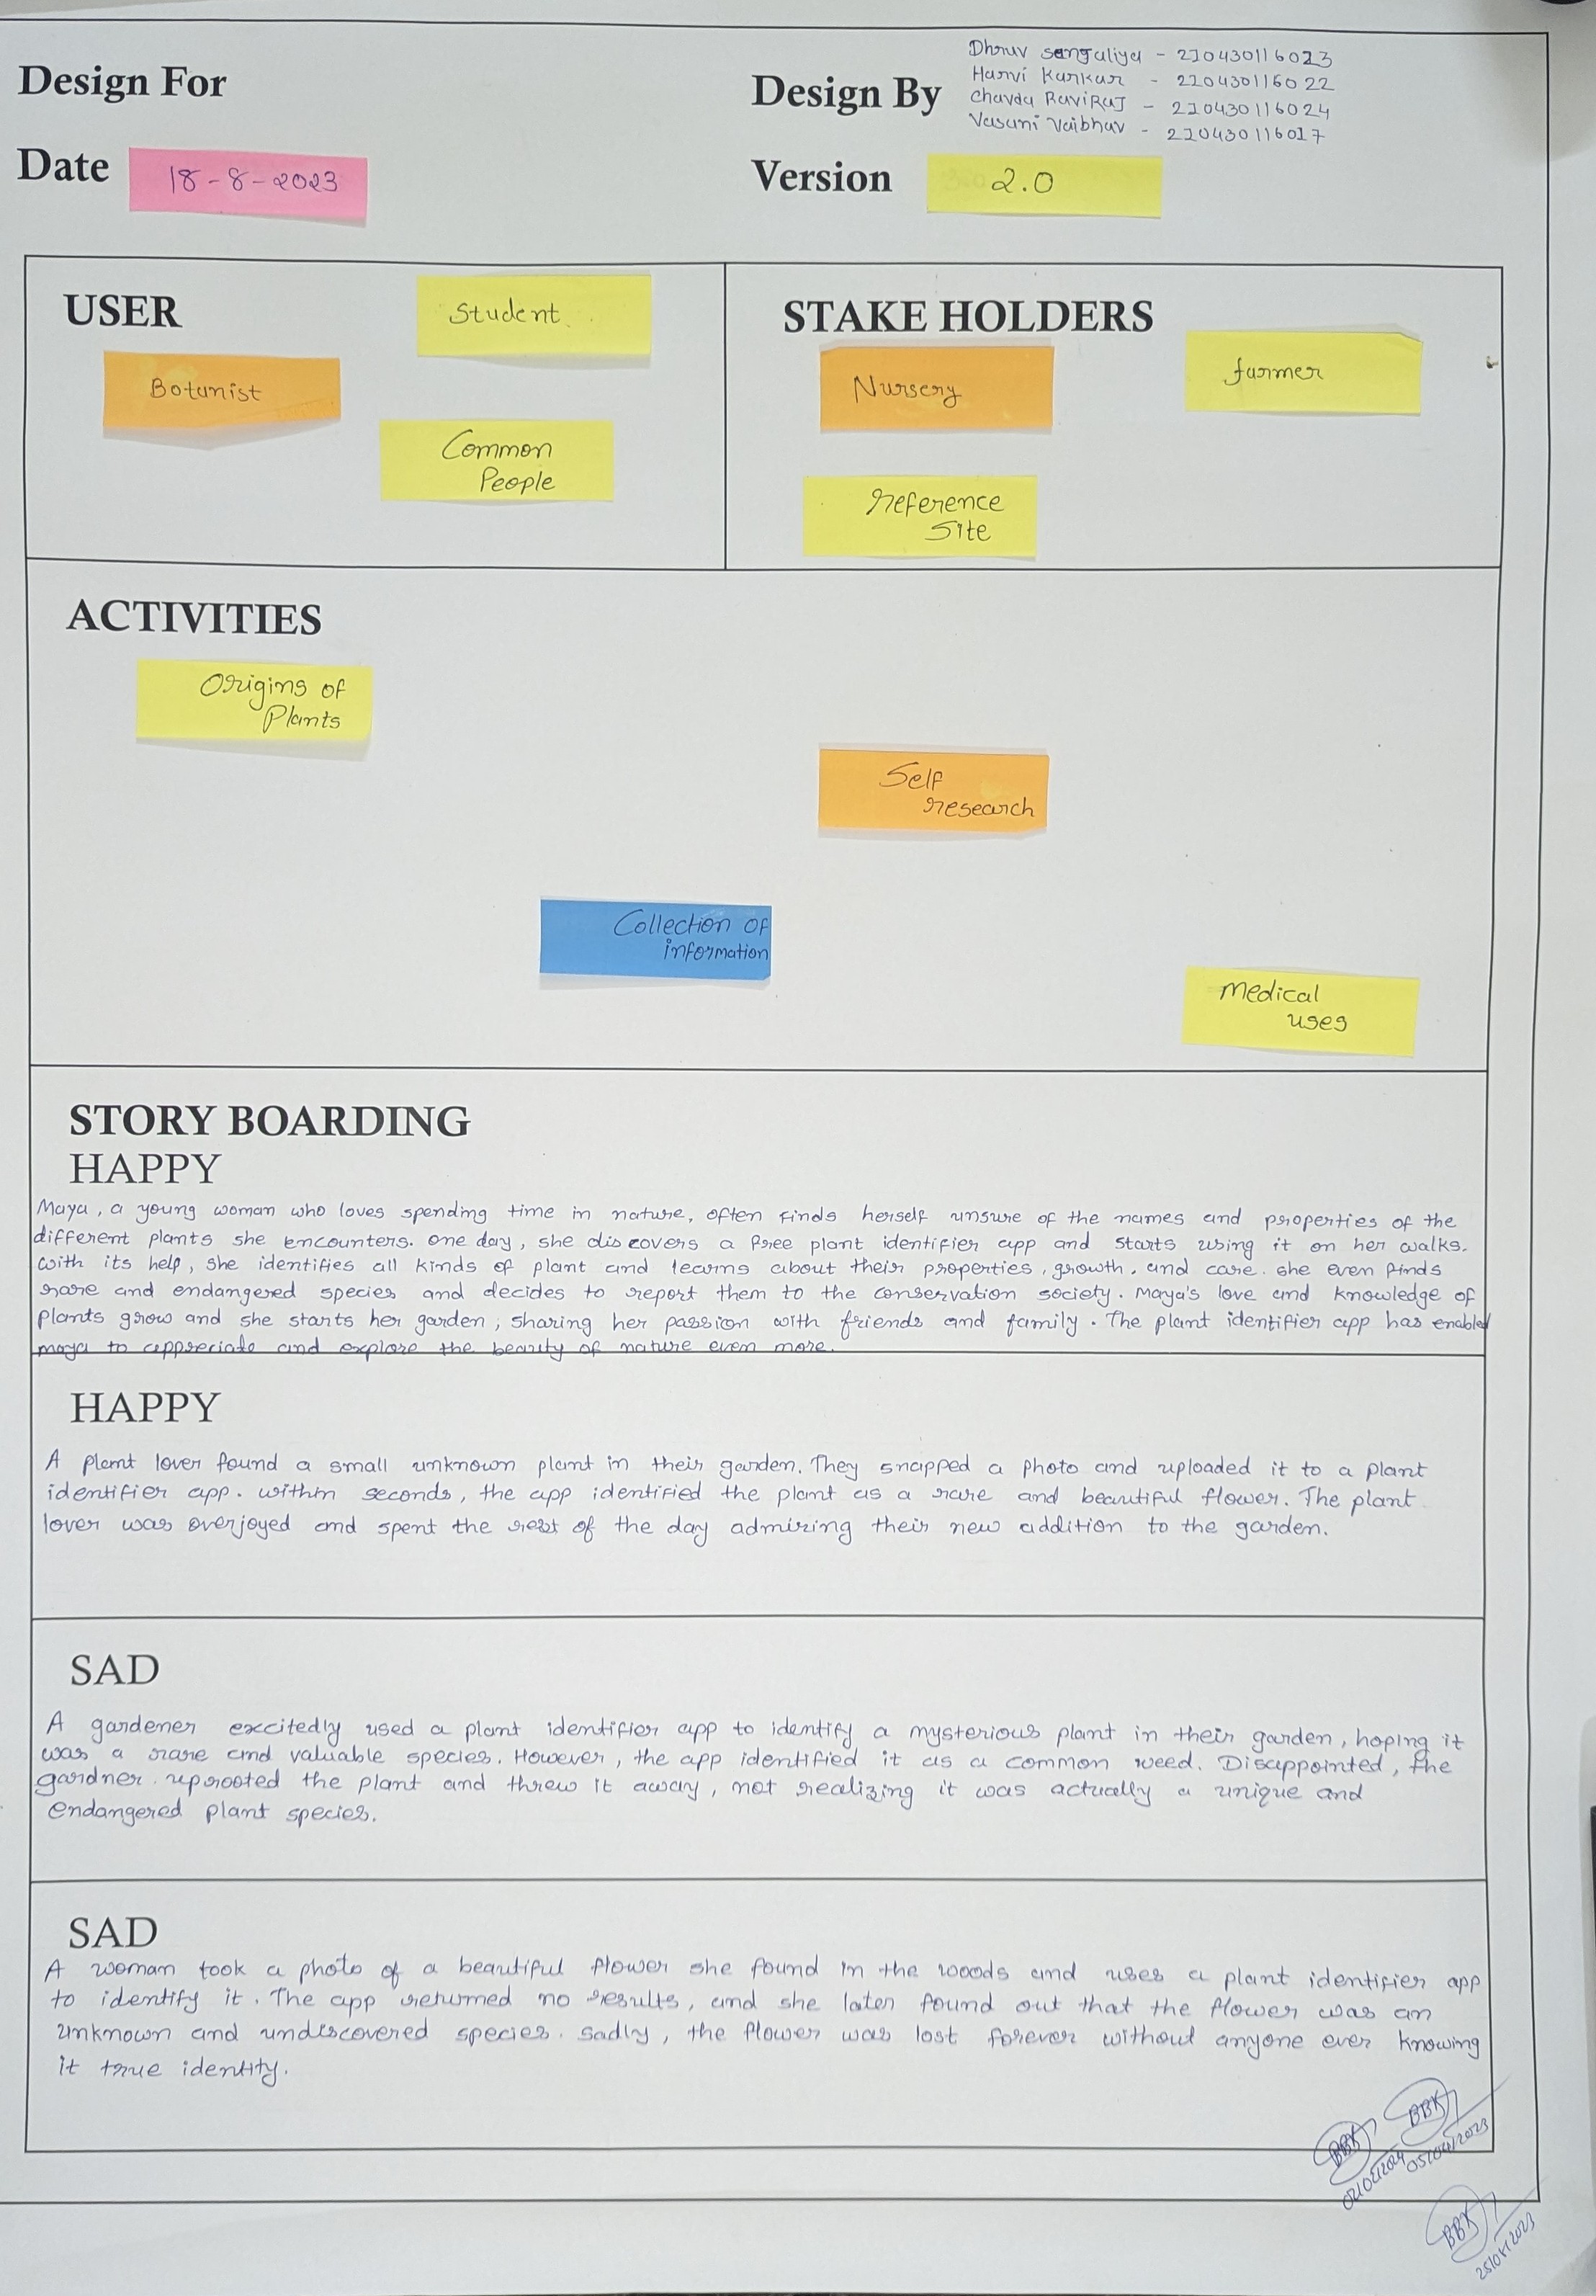 Design For
Design By
Dhruv Sengaliya - 210430116023
Harvi Kankar - 210430116022
Chavda RaviRaj - 210430116024
Vasani Vaibhav - 210430116017
Date
18-8-2023
Version
2.0
USER
Student
Botanist
Common
People
STAKE HOLDERS
Nursery
farmer
reference
Site
ACTIVITIES
Origins of
Plants
Self
research
Collection of
information
medical
uses
STORY BOARDING
HAPPY
Maya, a young woman who loves spending time in nature, often finds herself unsure of the names and properties of the
different plants she encounters. one day, she discovers a free plant identifier app and starts using it on her walks.
with its help, she identifies all kinds of plant and learns about their properties, growth, and care. she even finds
rare and endangered species and decides to report them to the conservation society. Maya's love and knowledge of
plants grow and she starts her garden, sharing her passion with friends and family. The plant identifier app has enabled
maya to appreciate and explore the beauty of nature even more.
HAPPY
A plant lover found a small unknown plant in their garden. They snapped a photo and uploaded it to a plant
identifier app. within seconds, the app identified the plant as a rare and beautiful flower. The plant
lover was overjoyed and spent the rest of the day admiring their new addition to the garden.
SAD
A gardener excitedly used a plant identifier app to identify a mysterious plant in their garden, hoping it
was a rare and valuable species. However, the app identified it as a common weed. Disappointed, the
gardner uprooted the plant and threw it away, not realizing it was actually a unique and
endangered plant species.
SAD
A woman took a photo of a beautiful flower she found in the woods and uses a plant identifier app
to identify it. The app returned no results, and she later found out that the flower was an
unknown and undiscovered species. sadly, the flower was lost forever without anyone ever knowing
it true identity.
BBK
BBK
05/04/2023
BBK